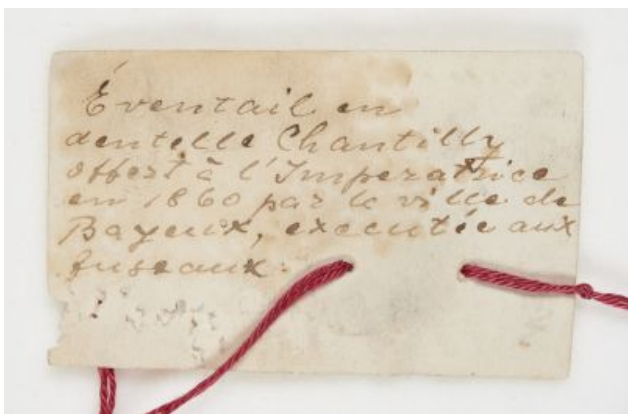 Éventail en
dentelle Chantilly
offert à l'Imperatrice
en 1860 par le ville de
Bayeux, executée aux
fuseaux.